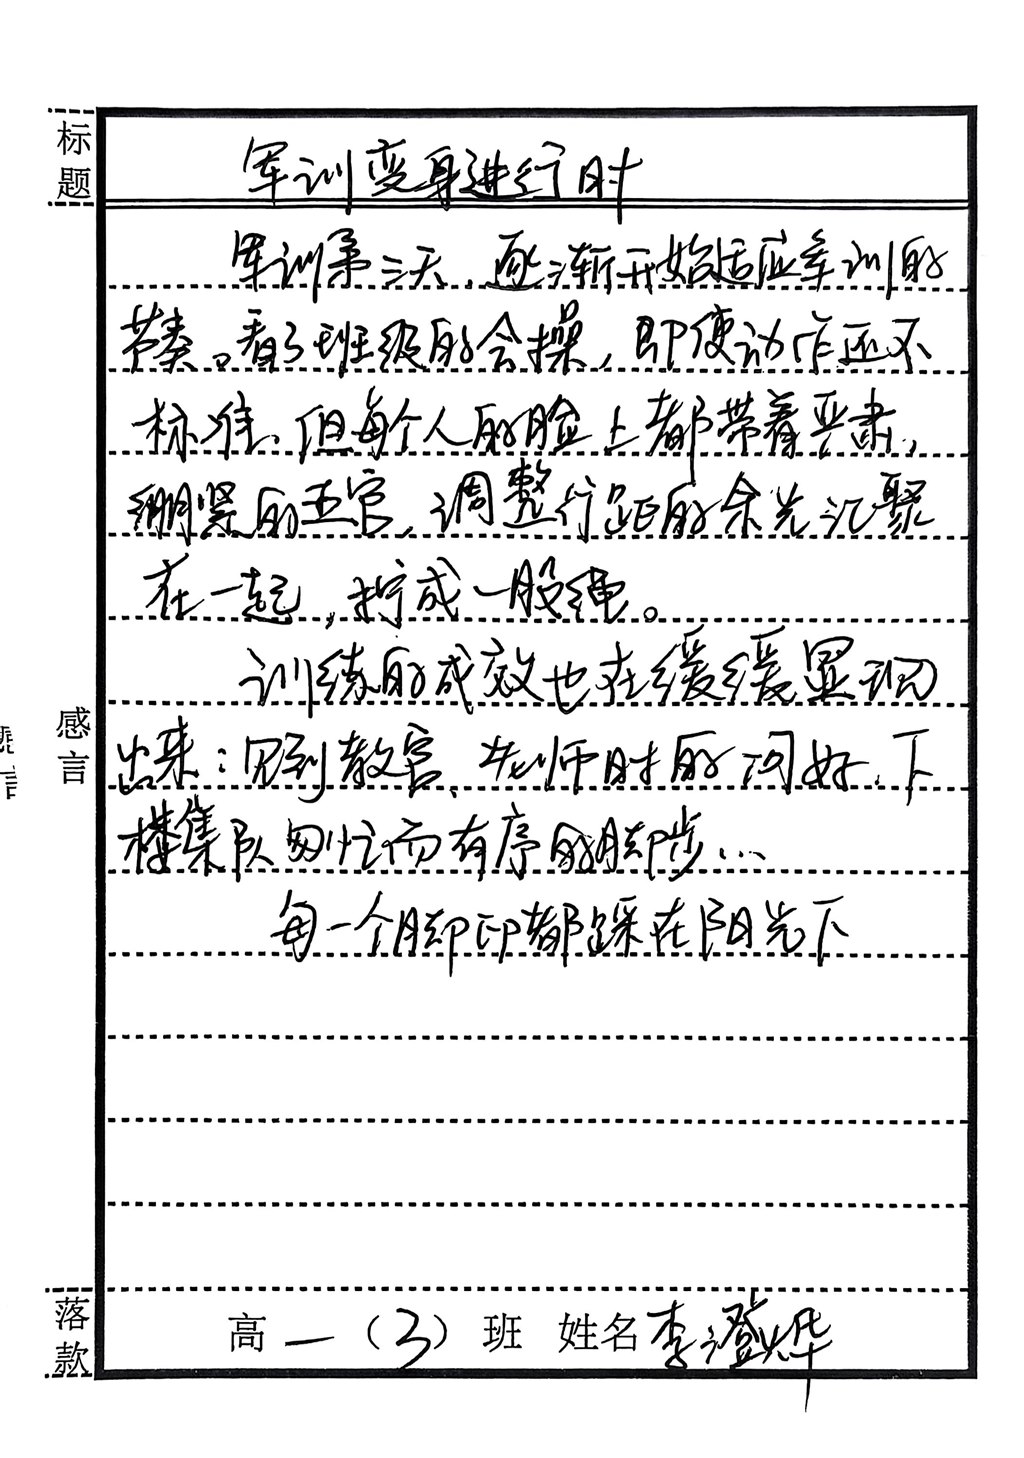 标题
军训变身进行时
军训第三天，逐渐开始适应军训的
节奏。看了班级的会操，即使动作还不
标准，但每个人的脸上都带着严肃，
绷紧的五官，调整行距的余光汇聚
在一起，拧成一股绳。
训练的成效也在缓缓显现
感言
出来：见到教官、老师时的问好、下
楼集队匆忙而有序的脚步…
每一个脚印都踩在阳光下
落款
高一（3）班 姓名李澄烨